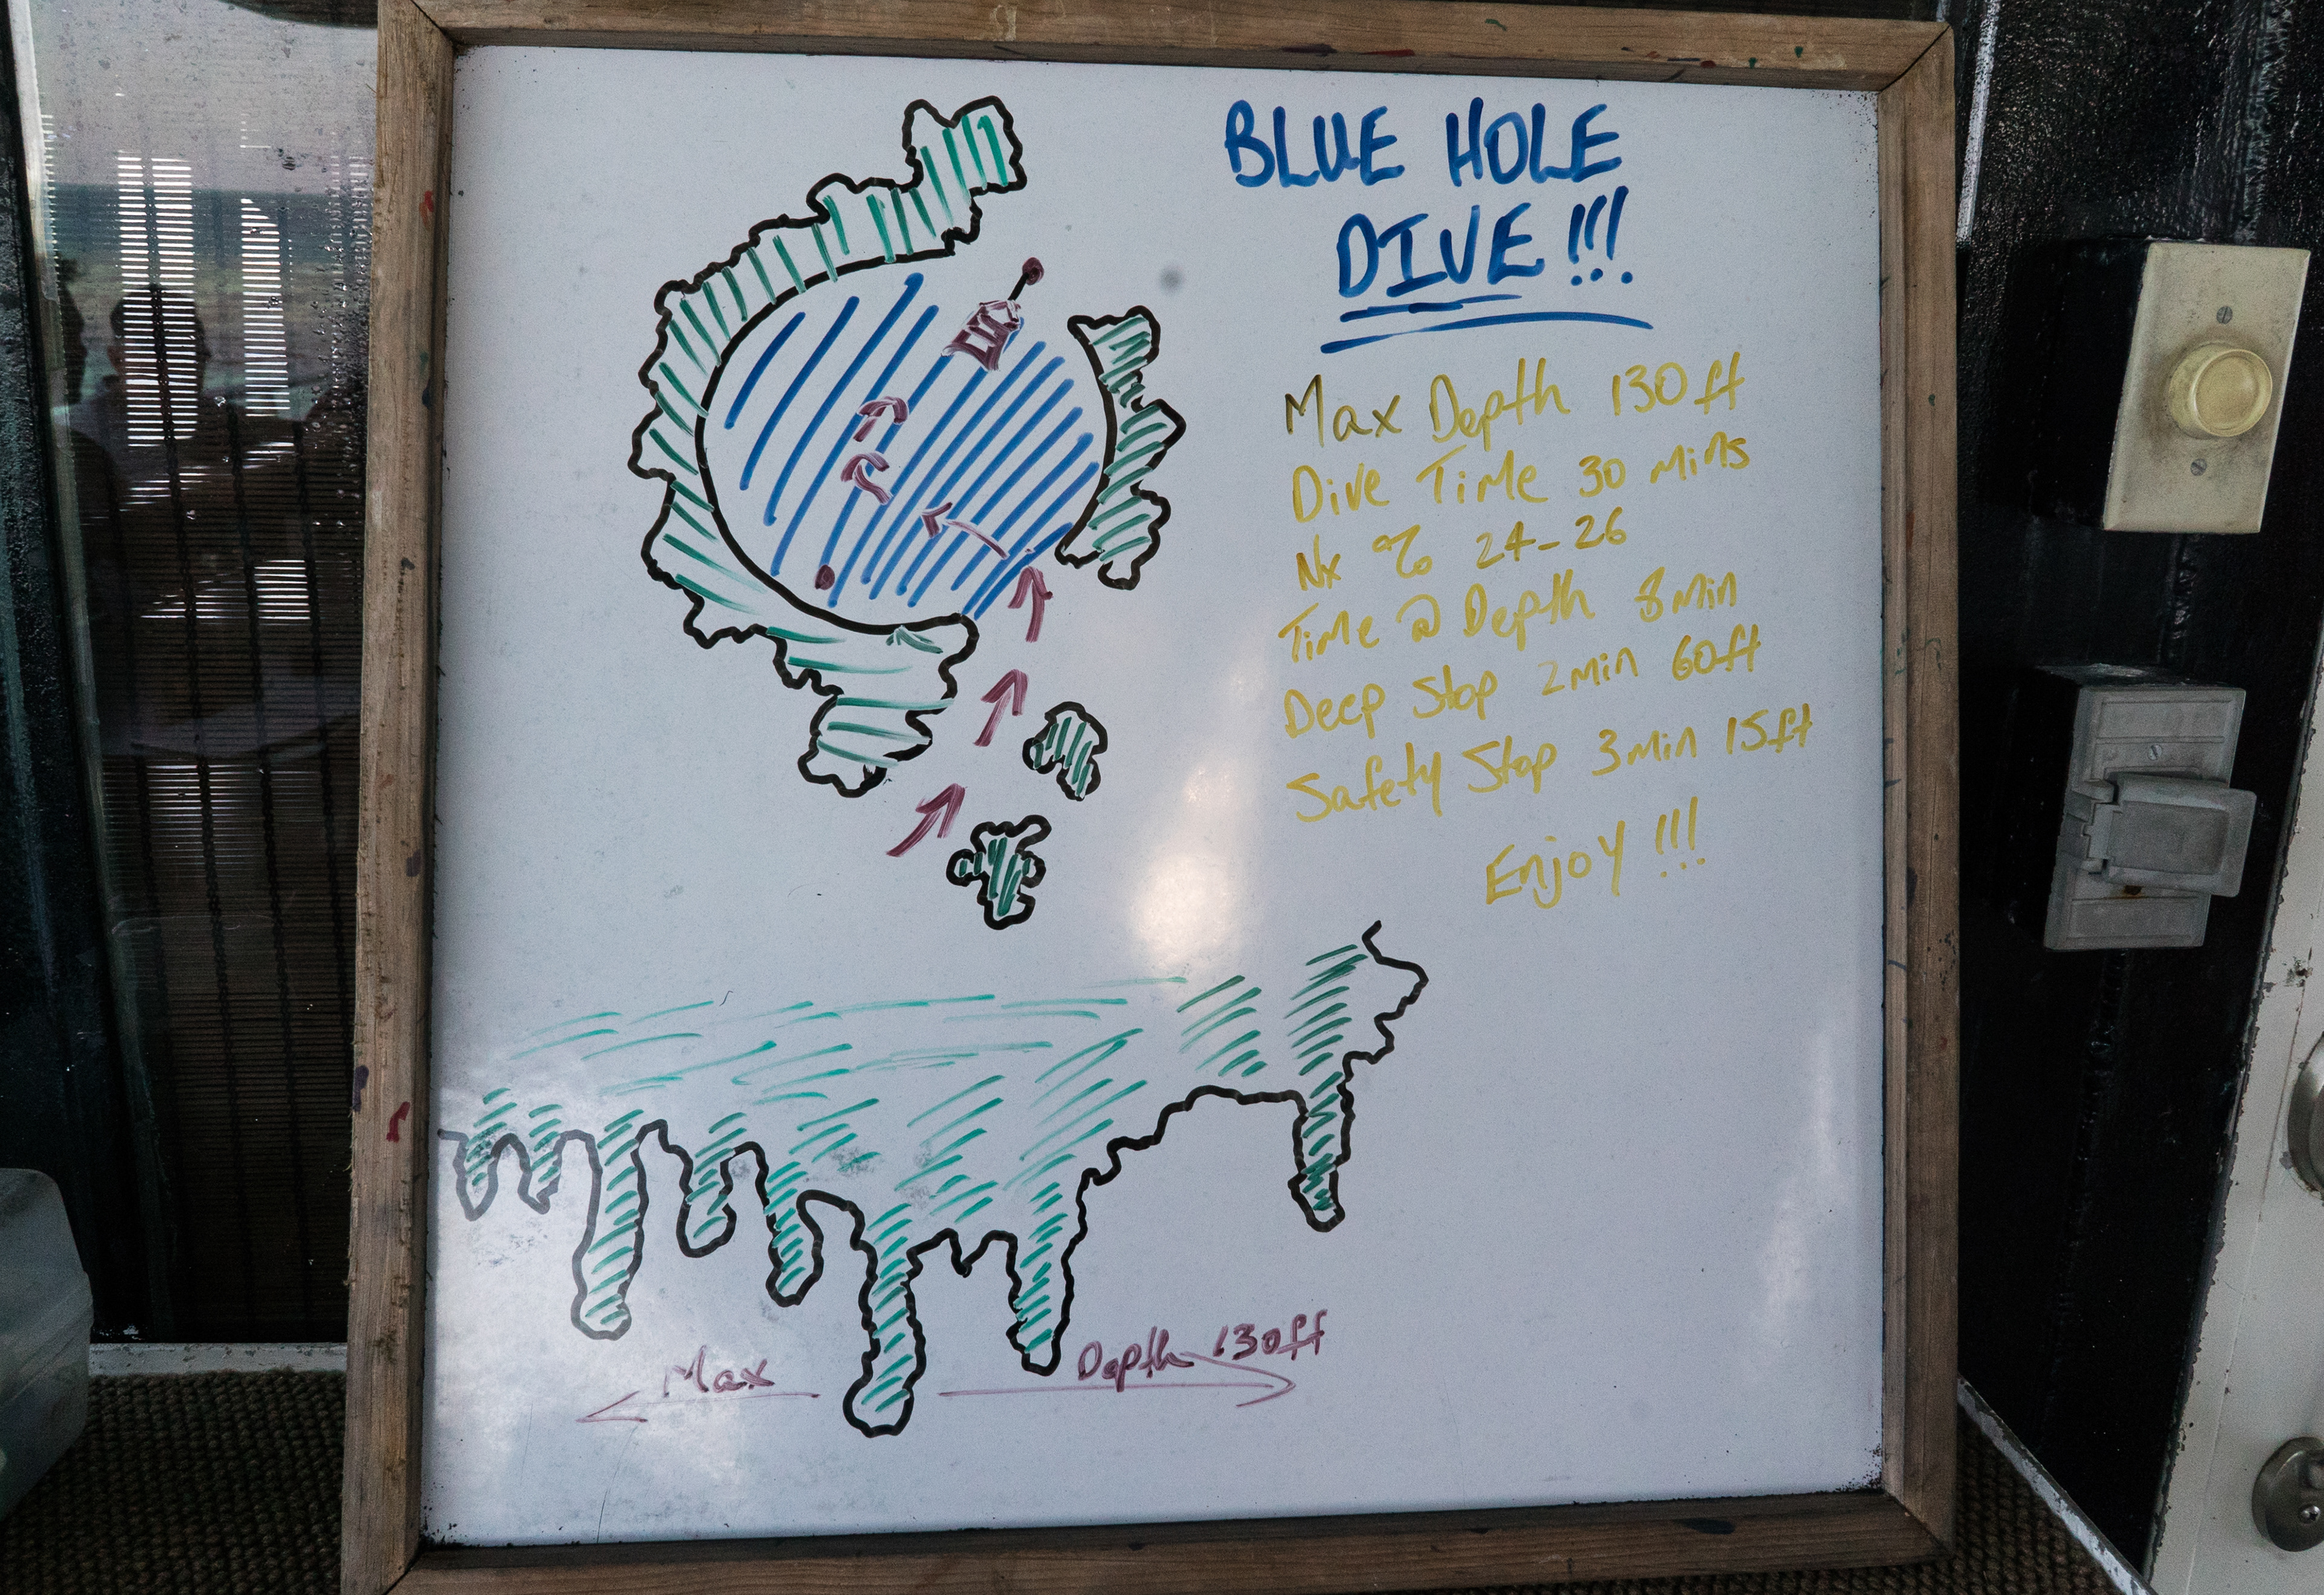 BLUE HOLE
DIVE!!!
Max Depth 130ft
Dive Time 30 mins
Nx % 24-26
Time @ Depth 8min
Deep Stop 2min 60ft
Safety Stop 3min 15ft
Enjoy!!!
Max Depth 130ft